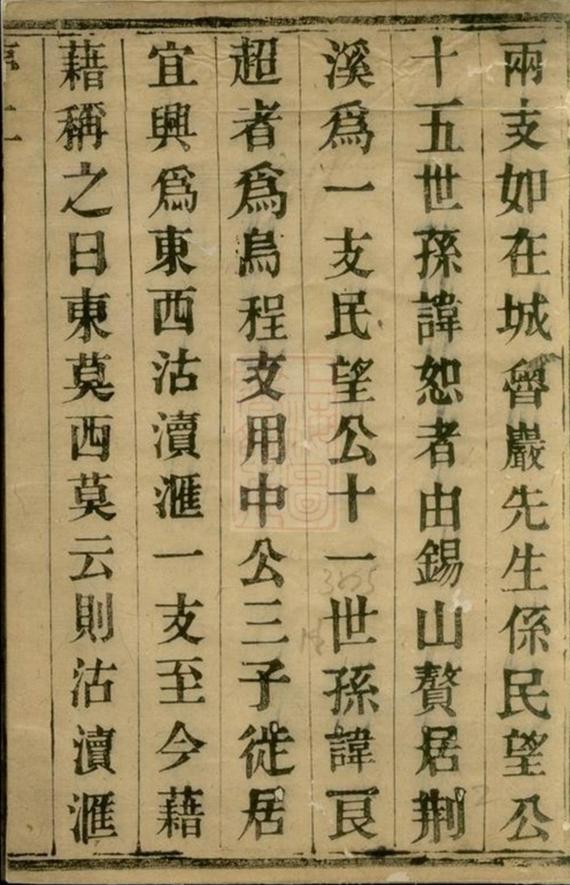 兩支如在城曾巖先生係民望公
十五世孫諱恕者由錫山贅居荆
溪爲一支民望公十一世孫諱良
超者爲烏程支用中公三子徙居
宜興爲東西沽瀆滙一支至今藉
藉稱之曰東莫西莫云則沽瀆滙